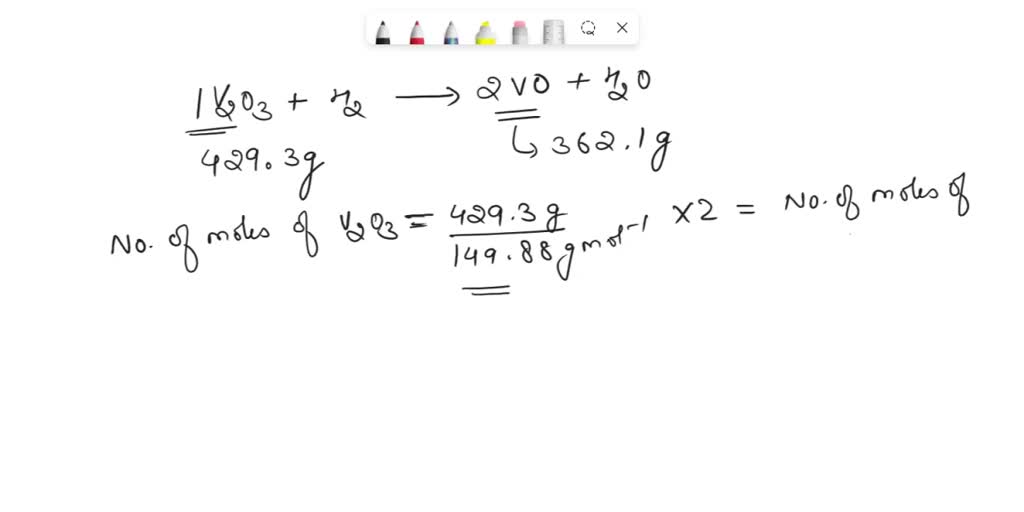 1V₂O₃ + H₂ ⟶ 2VO + H₂O
429.3g ↳ 362.1g
No. of moles of V₂O₃ = 429.3 g / 149.88 g mol⁻¹ × 2 = No. of moles of